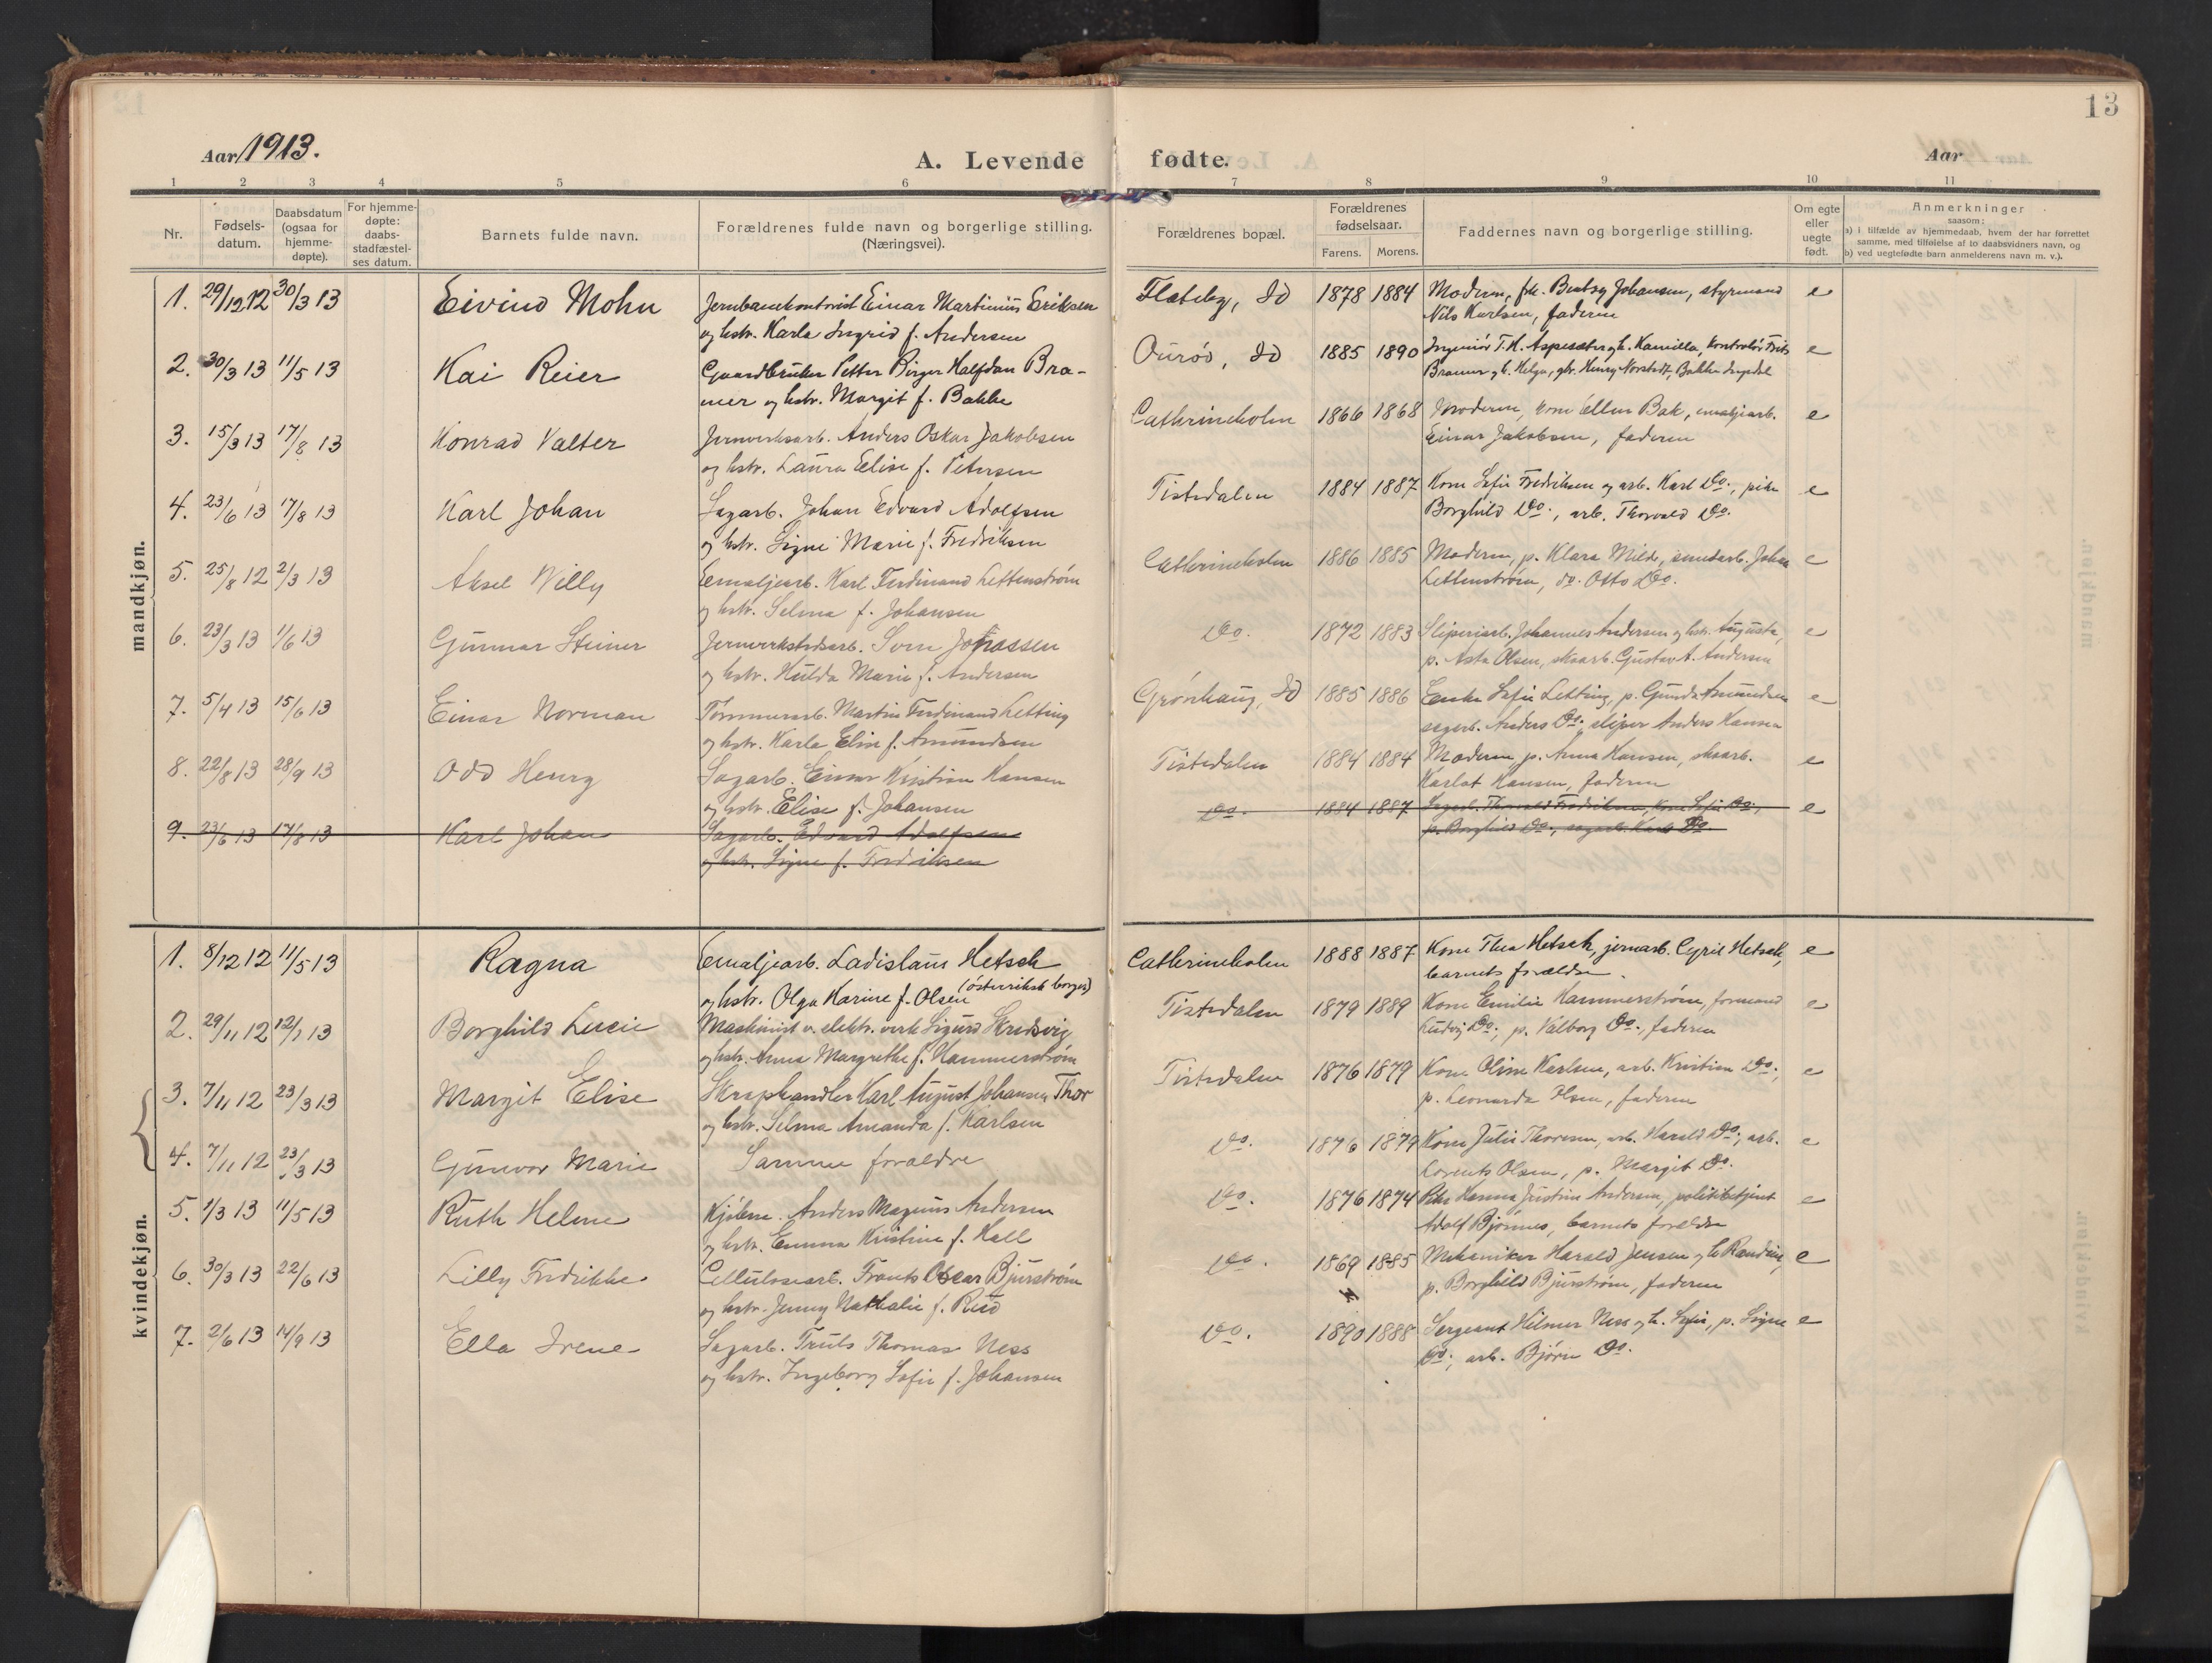 13
Aar 1913.
A. Levende fødte.
Aar
1 2 3 4 5 6 7 8 9 10 11
Nr.
Fødsels-
datum.
Daabsdatum
(ogsaa for
hjemme-
døpte).
For hjemme-
døpte:
daabs-
stadfæstel-
ses datum.
Barnets fulde navn.
Forældrenes fulde navn og borgerlige stilling.
(Næringsvei).
Forældrenes bopæl.
Forældrenes
fødselsaar.
Farens. Morens.
Faddernes navn og borgerlige stilling.
Om egte
eller
uegte
født.
Anmerkninger
saasom:
a) i tilfælde av hjemmedaab, hvem der har forrettet
samme, med tilføielse af to daabsvidners navn, og
b) ved uegtefødte barn anmelderens navn m. v.).
mandkjøn.
1. 29/12 12 30/3 13 Eivind Mohn Jernbanekontorist Einar Martinius Eriksen Flateby, Id 1878 1884 Moderen, frk. Johansen, styrmand e
og hstr. Karla Ingrid f. Andersen Nils Karlsen, faderen
2. 30/3 13 11/5 13 Kai Reier Gaardbruker Petter Birger Halfdan Bra- Ourød, Id 1885 1890 Ingeniør T. H. Aspesæter og h. Kamilla, kontrolør Frits e
mer og hstr. Margit f. Bakke Bramer og h. Helga, gbr. Henry Norstedt, Bakke Ingedal
3. 15/3 13 17/8 13 Konrad Valter Jernverksarb. Anders Oskar Jakobsen Cathrineholm 1866 1868 Moderen, kone Ellen Bak, emaljearb. e
og hstr. Laura Elise f. Petersen Einar Jakobsen, faderen
4. 23/6 13 17/8 13 Karl Johan Sagarb. Johan Edvard Adolfsen Tistedalen 1884 1887 Kone Sofie Fredriksen og arb. Karl Do., pike e
og hstr. Signe Marie f. Fredriksen Borghild Do., arb. Thorvald Do.
5. 25/8 12 2/3 13 Aksel Willy Emaljearb. Karl Ferdinand Lettenstrøm Cathrineholm 1886 1885 Moderen, p. Klara Milde, smedarb. Johan e
og hstr. Selma f. Johansen Lettenstrøm, do. Otto Do.
6. 23/3 13 1/6 13 Gunnar Steiner Jernverkstedsarb. Sven Jonassen Do. 1872 1883 Sliperiarb. Johannes Andersen og hstr. Augusta, e
og hstr. Hulda Marie f. Andersen p. Asta Olsen, skoarb. Gustav A. Andersen
7. 5/4 13 15/6 13 Einar Norman Tømmerarb. Martin Ferdinand Letting Grønhaug, Id 1885 1886 Enke Sofie Letting, p. Gunda Amundsen e
og hstr. Karla Elise f. Amundsen sagarb. Anders Do., sliper Anders Hansen
8. 22/8 13 28/9 13 Odd Henry Sagarb. Einar Kristian Hansen Tistedalen 1884 1884 Moderen, p. Anna Hansen, skoarb. e
og hstr. Elise f. Johansen Karlot Hansen, faderen
9. 23/6 13 17/8 13 Karl Johan Sagarb. Edvard Adolfsen Do. 1884 1887 Sagarb. Thorvald Fredriksen, kone Sofie Do., e
og hstr. Signe f. Fredriksen p. Borghild Do., sagarb. Karl Do.
kvindekjøn.
1. 8/12 12 11/5 13 Ragna Emaljearb. Ladislaus Hetsch Cathrineholm 1888 1887 Kone Thea Hetsch, jernarb. Cyril Hetsch, e
(østerriksk borger)
og hstr. Olga Karine f. Olsen barnets forældre.
2. 29/11 12 12/1 13 Borghild Lucie Maskinist v. elektr. verk Sigurd Skredsvig Tistedalen 1879 1889 Kone Emilie Hammerstrøm, formand e
og hstr. Anna Margrethe f. Hammerstrøm Ludvig Do., p. Valborg Do., faderen
3. 7/11 12 23/3 13 Margit Elise Skraphandler Karl August Johansen Thor Tistedalen 1876 1879 Kone Oline Karlsen, arb. Kristian Do., e
og hstr. Selma Amanda f. Karlsen p. Leonarda Olsen, faderen
4. 7/11 12 23/3 13 Gunvor Marie Samme forældre Do. 1876 1879 Kone Julie Thoresen, arb. Harald Do., arb. e
Lorents Olsen, p. Margit Do.
5. 1/3 13 11/5 13 Ruth Helene Kjøbm. Anders Magnus Andersen Do. 1876 1874 Pike Hanna Justine Andersen, politibetjent e
og hstr. Emma Kristine f. Hall Adolf Bjørnnes, barnets forældre
6. 30/3 13 22/6 13 Lilly Fredrikke Cellulosearb. Frants Oscar Bjurstrøm Do. 1869 1885 Mekaniker Harald Jensen og h. Randine, e
og hstr. Jenny Nathalie f. Rud p. Borghild Bjurstrøm, faderen
7. 2/6 13 14/9 13 Ella Irene Sagarb. Truls Thomas Ness Do. 1890 1888 Sergeant Hilmer Ness og h. Sofie, p. Signe e
og hstr. Ingeborg Sofie f. Johansen Do., arb. Bjørn Do.